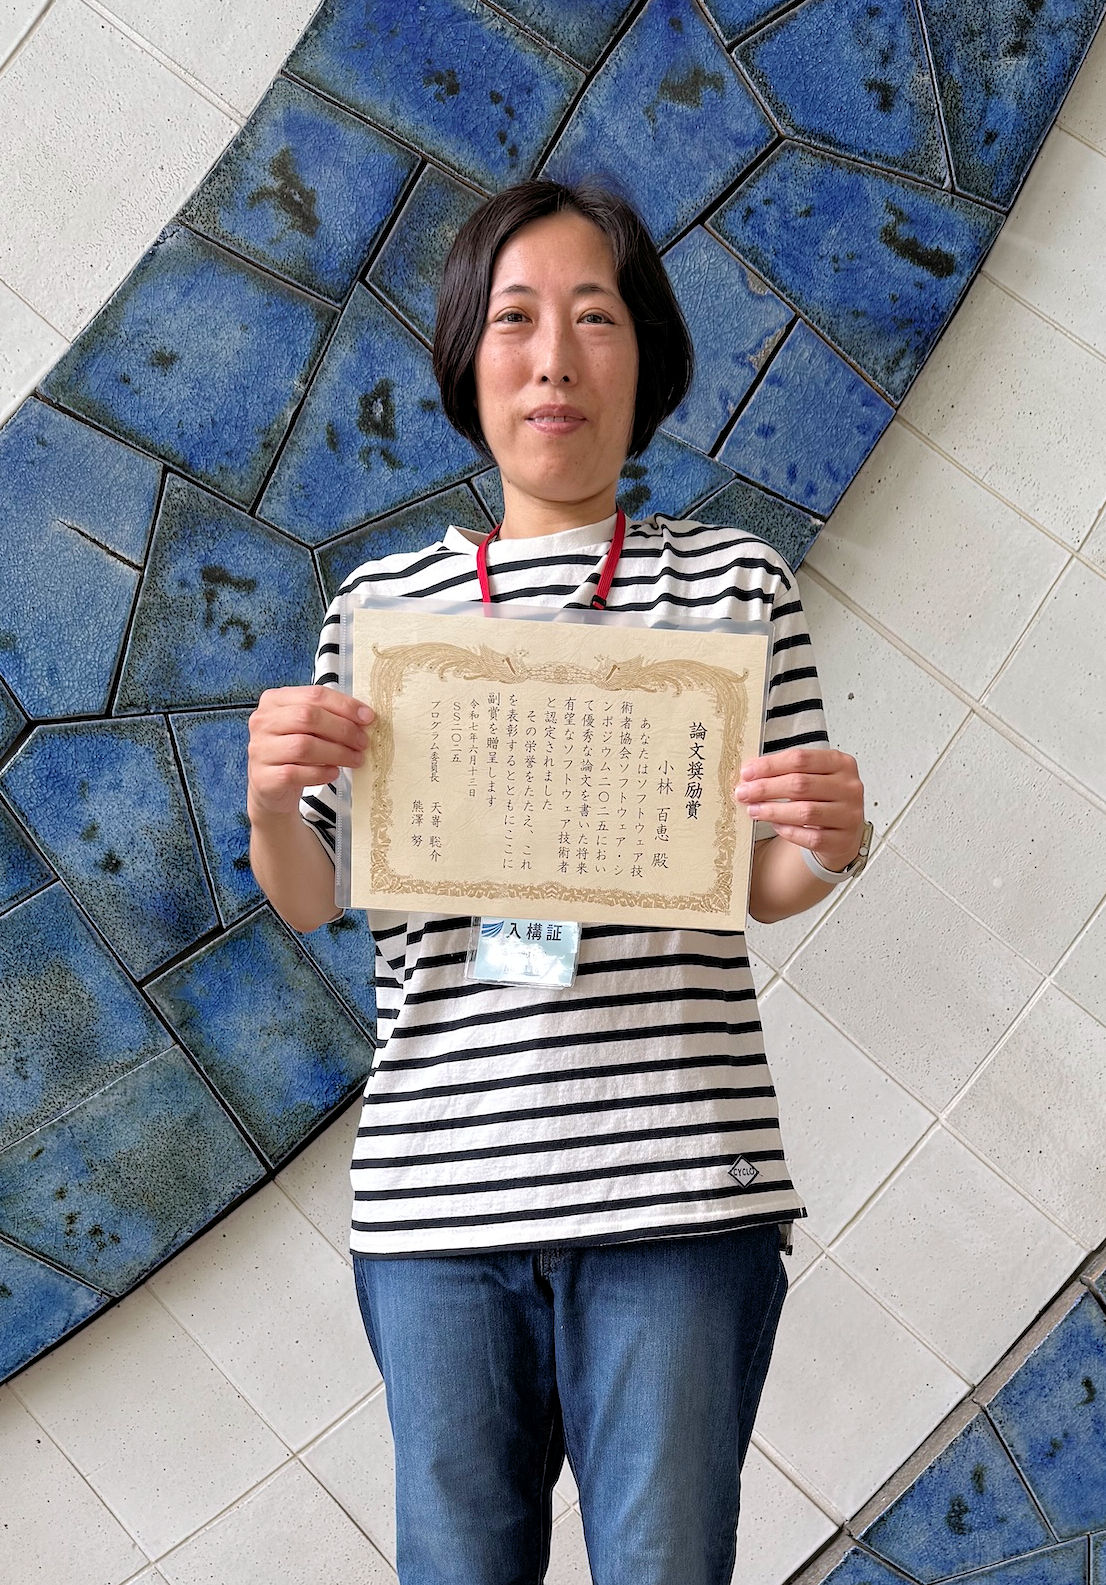 論文奨励賞
小林 百恵 殿
あなたはソフトウェア技
術者協会ソフトウェア・シ
ンポジウム二〇二五におい
て優秀な論文を書いた将来
有望なソフトウェア技術者
と認定されました
その栄誉をたたえ、これ
を表彰するとともにここに
副賞を贈呈します
令和七年六月十三日
SS二〇二五
プログラム委員長
天嵜 聡介
熊澤 努
入構証
CYCLO